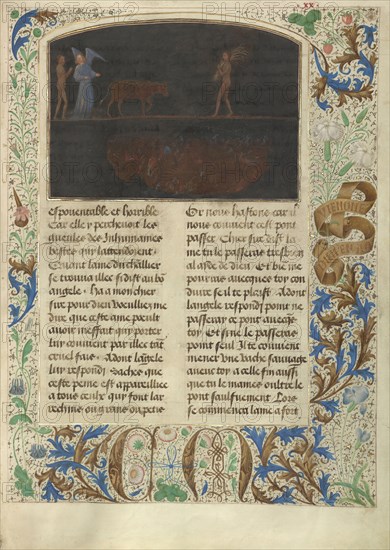 espouentable et horrible
Car elle y percheuoit les
gueules des Inhumaines
bestes qui lattendoient
Quant lame du challier
se trouua illec si dist au bo
angele Ha a mon chier
sire pour dieu voeullies me
dire que ceste ame poeult
auoir meffait qui porter
luy conuient par illec tant
cruel faie Adont langele
luy respondi Saches que
ceste peine est appareilliee
a tous ceulx qui font lar
rechins ou grans ou petis
Or nous hastons car il
nous conuient cest pont
passer Chier sire dist la
me tu le passeras tresbien
a laide de dieu Et bié me
pourras auecques toy con
duire se il te plaist Adont
langele respondi pour ne
passeray ce pont auecques
toy Et si ne le passeras
point seul Il te conuient
mener vne vache sauuage
aueuc toy a celle fin aussi
que tu le maines oultre le
pont saulfuement Lors
se commenca lame a fort